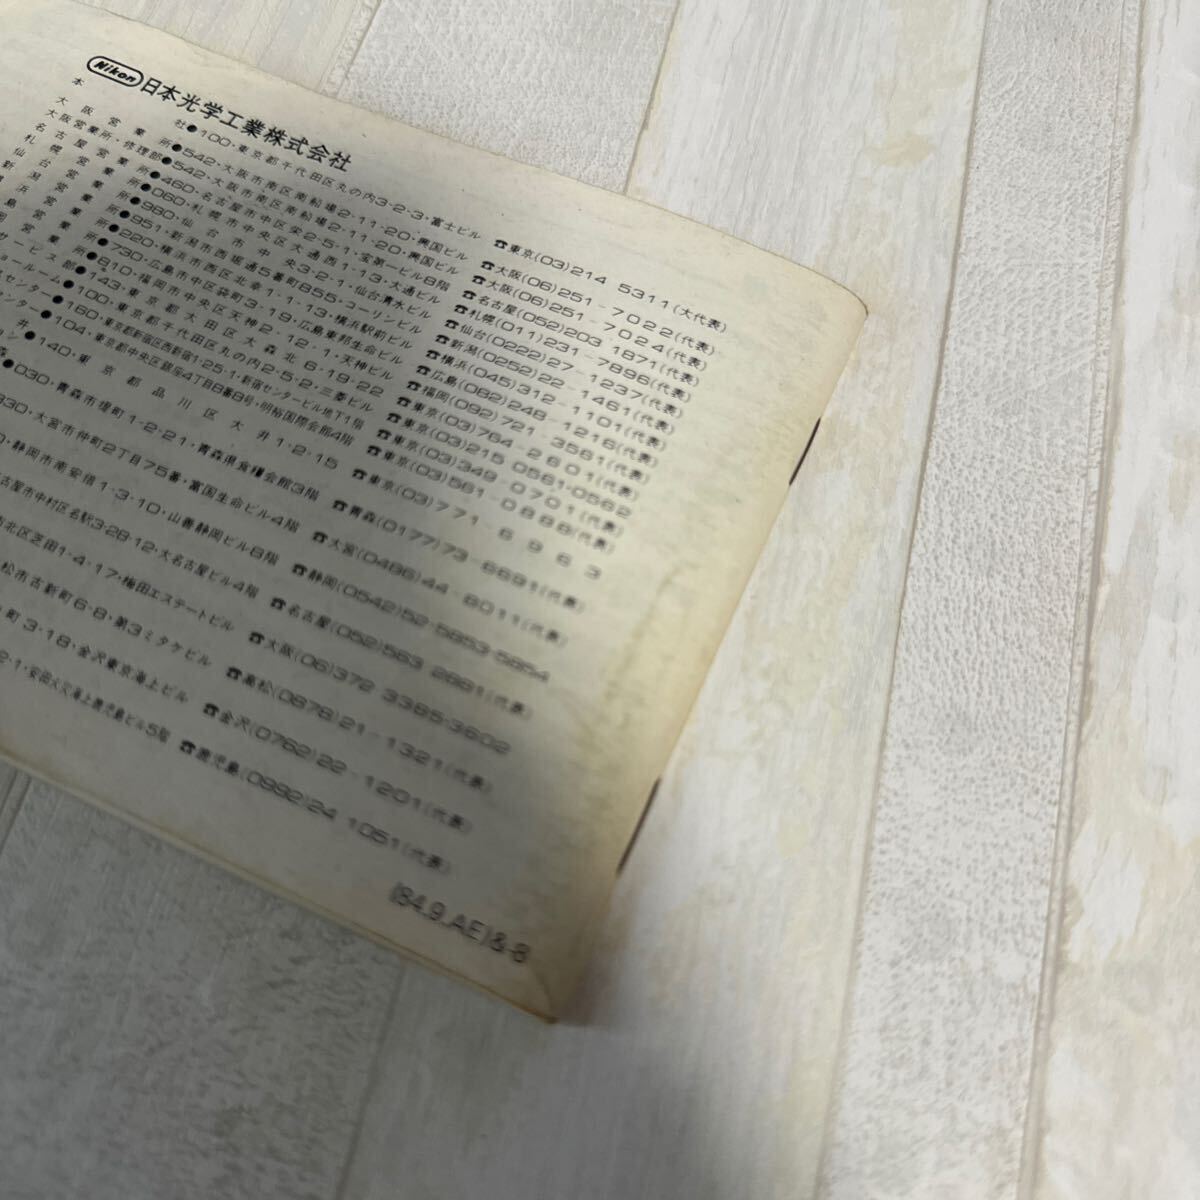 Nikon 日本光学工業株式会社
本 社●100・東京都千代田区丸の内3-2-3・富士ビル ☎東京(03)214-5311(大代表)
大阪営業所●542・大阪市南区南船場2-11-20・興国ビル ☎大阪(06)251-7022(代表)
大阪営業所・修理部●542・大阪市南区南船場2-11-20・興国ビル ☎大阪(06)251-7024(代表)
名古屋営業所●460・名古屋市中区栄2-5-1・宝第一ビル8階 ☎名古屋(052)203-1871(代表)
札幌営業所●060・札幌市中央区大通西1-13・大通ビル ☎札幌(011)231-7896(代表)
仙台営業所●980・仙台市中央3-2-1・仙台青水ビル ☎仙台(0222)27-1237(代表)
新潟営業所●951・新潟市西堀通5番町855・コーリンビル ☎新潟(0252)22-1461(代表)
浜営業所●220・横浜市西区北幸1-1-13・横浜駅前ビル ☎横浜(045)312-1101(代表)
島営業所●730・広島市中区袋町3-19・広島東邦生命ビル ☎広島(082)248-1216(代表)
岡営業所●810・福岡市中央区天神2-12-1・天神ビル ☎福岡(092)721-3561(代表)
サービス部●143・東京都大田区大森北6-19-22 ☎東京(03)764-2601(代表)
ョールーム●100・東京都千代田区丸の内2-5-2・三菱ビル ☎東京(03)215-0561・0562
スセンター●160・東京都新宿区西新宿1-25-1・新宿センタービル地下1階 ☎東京(03)349-0701(代表)
ンター●104・東京都中央区銀座4丁目8番8号・明裕国際会館4階 ☎東京(03)561-0888(代表)
井●140・東京都品川区大井1-2-15 ☎東京(03)771-6963
森●030・青森市堤町1-2-21・青森県食糧会館3階 ☎青森(0177)73-6691(代表)
330・大宮市仲町2丁目75番・富国生命ビル4階 ☎大宮(0486)44-8011(代表)
0・静岡市南安倍1-3-10・山善静岡ビル6階 ☎静岡(0542)52-5853・5854
古屋市中村区名駅3-28-12・大名古屋ビル4階 ☎名古屋(052)563-2881(代表)
北区芝田1-4-17・梅田エステートビル ☎大阪(06)372-3385・3602
松市古新町6-8・第3ミタケビル ☎高松(0878)21-1321(代表)
町3-18・金沢東京海上ビル ☎金沢(0762)22-1201(代表)
2-1・安田火災海上鹿児島ビル5階 ☎鹿児島(0992)24-1051(代表)
(84.9.AE)&-8